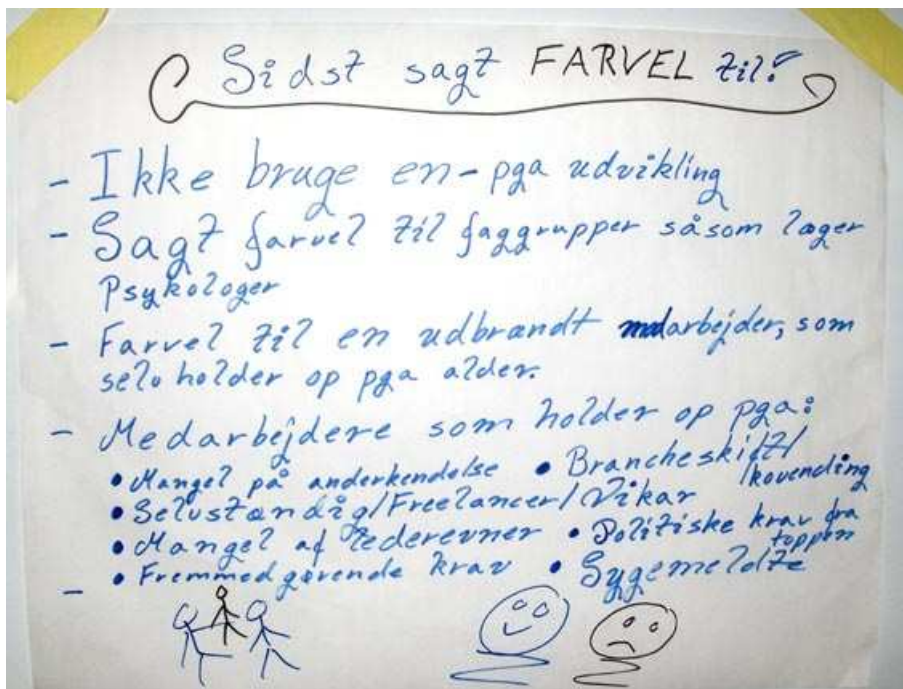 Sidst sagt FARVEL til?
- Ikke bruge en - pga udvikling
- Sagt farvel til faggrupper såsom læger
Psykologer
- Farvel til en udbrændt medarbejder, som
selv holder op pga alder.
- Medarbejdere som holder op pga:
• Mangel på anderkendelse • Brancheskift/
/kovending
• Selvstændig/Freelancer/Vikar
• Mangel af lederevner • Politiske krav fra
toppen
• Fremmedgørende krav • Sygemeldte
-